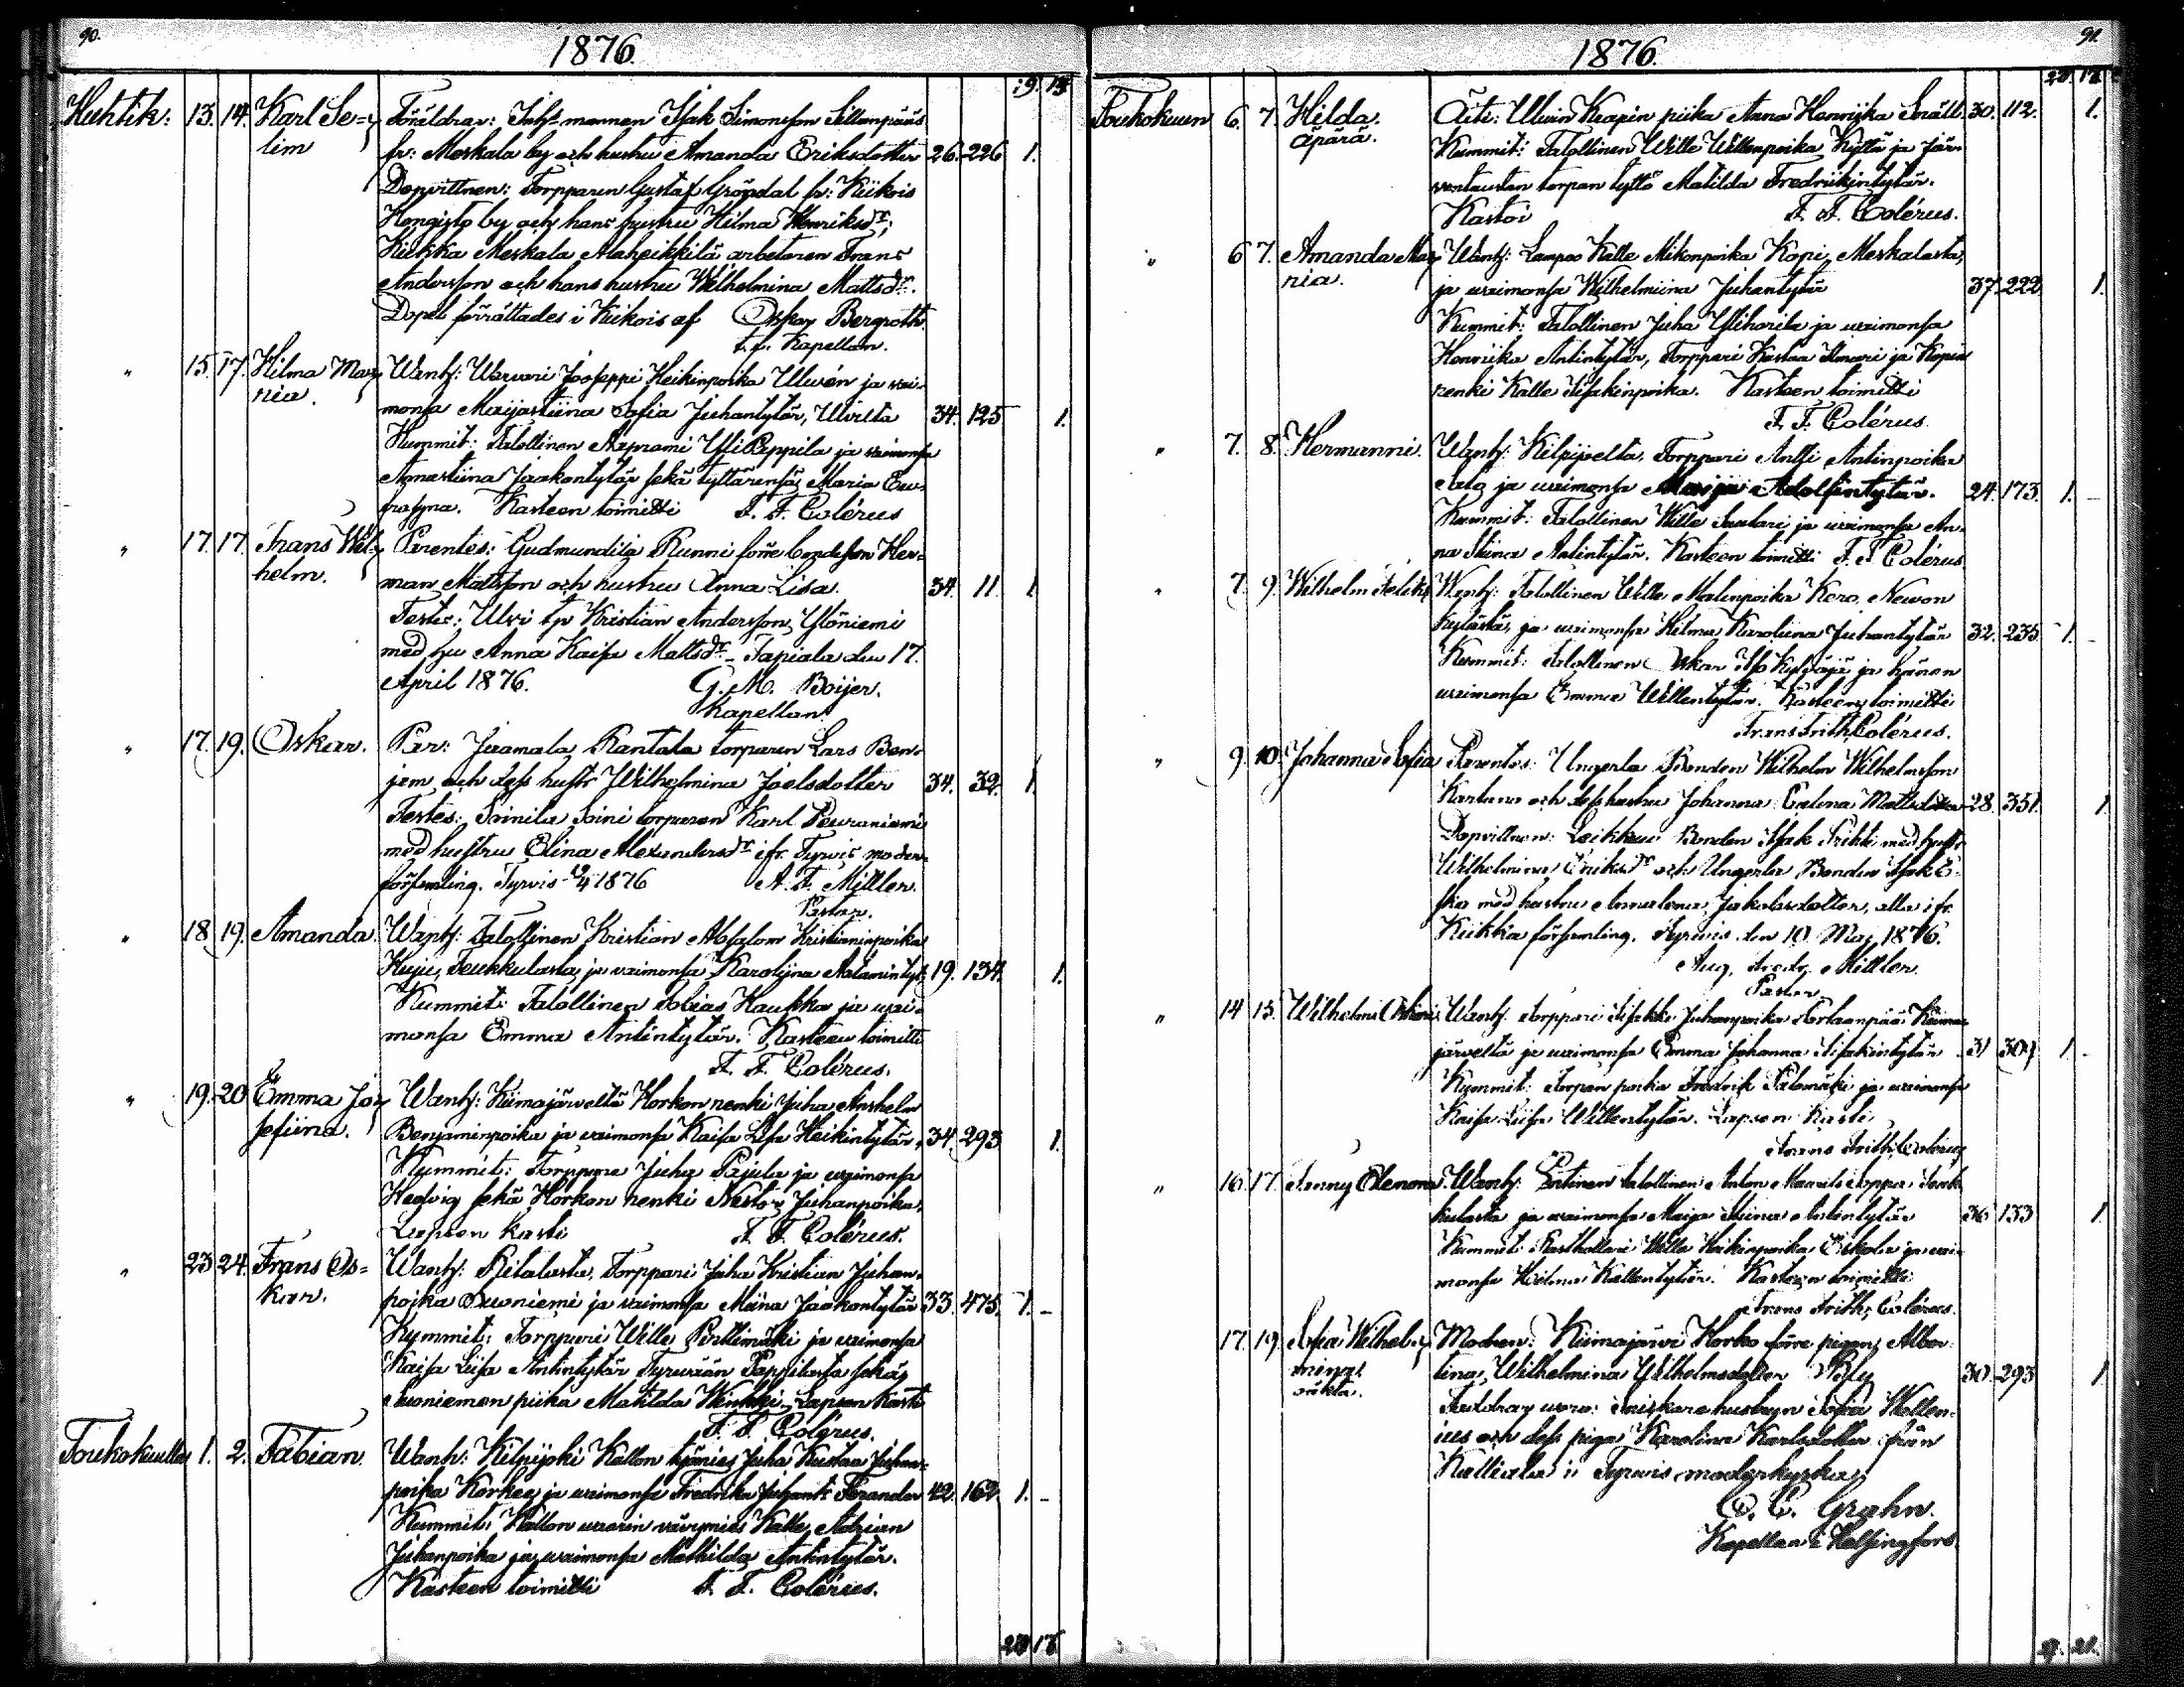 90.
1876.
19. 13.
Huhtik: 13. 14. Karl Se= Föräldrar: Inhs mannen Isak Simonsson Sillanpää
lim fr: Meskala by och hustru Amanda Eriksdotter 26. 226 1.
Dopvittnen: Torpparen Gustaf Gröndal fr: Kiikois
Hongisto by och hans hustru Hilma Henriksdr;
Kiikka Meskala Alaheikkilä arbetaren Frans
Andersson och hans hustru Wilhelmina Mattsdr.
Dopet förrättades i Kiikois af Oskar Bergroth
t.f. Kapellan.
" 15. 17. Hilma Ma= Wanh: Warvari Jooseppi Heikinpoika Ulvén ja vai=
ria. monsa Maijastiina Sofia Juhantytär, Ulvilta 34. 125 1.
Kummit: Talollinen Aaprami YliPappila ja vaimonsa
Annastiina Jaakontytär sekä tyttärensä Maria Eu=
frasyna. Kasteen toimitti F. F. Colérus
" 17. 17. Frans Wil= Parentes: Gudmundila Runni förre bondeson Her=
helm. man Mattsson och hustru Anna Lisa. 34. 11 1
Testes: Ulvi tp Kristian Andersson Ylöniemi
med hu Anna Kaisa Mattsdr. Tapiala den 17.
April 1876. G. M. Boijer.
Kapellan
" 17. 19. Oskar. Par: Jaamala Rantala torparen Lars Ben=
jam. och dess hustr Wilhelmina Joelsdotter 34. 32. 1.
Testes: Soinila Soini torparen Karl Peuraniemi
med hustru Elina Alexandersdr ifr. Tyrvis moder=
församling. Tyrvis 19/4 1876 A. F. Miller.
Pastor.
" 18 19. Amanda. Wanh: Talollinen Kristian Absalom Kristianinpoika
Huju, Teukkulasta, ja vaimonsa Karolyna Aatamintyt. 19. 134. 1.
Kummit: Talollinen Tobias Kaukka ja vai=
monsa Emma Antintytär. Kasteen toimitti
F. F. Colérus.
" 19. 20 Emma Jo= Wanh: Kiimajärveltä Horkon renki Juha Anshelm
sefiina. Benjaminpoika ja vaimonsa Kaisa Lisa Heikintytär. 34. 293 1.
Kummit: Torppare Juha Pajula ja vaimonsa
Hedvig sekä Horkon renki Nestor Juhanpoika.
Lapsen kasti F. F. Colérus.
" 23 24. Frans Os= Wanh: Ritalasta, Torppari Juha Kristian Juhan=
kar. poika Suoniemi ja vaimonsa Miina Jaakontytär 33. 475. 1. -
Kummit: Torppari Wille Perttimäki ja vaimonsa
Kaisa Liisa Antintytär Tyrvään Pappilasta sekä
Suoniemen piika Matilda Wänkki. Lapsen kasti
F. F. Colérus.
Toukokuulla 1. 2. Fabian. Wanh: Kilpijoki Kallon työmies Juha Kustaa Juhan=
poika Korkea ja vaimonsa Fredrika Juhant: Forander 42. 162. 1. -
Kummit: Kallon vaarin vävymies Kalle Adrian
Juhanpoika ja vaimonsa Mathilda Antintytär.
Kasteen toimitti F. F. Colérus.
23 18
91.
1876.
23 18
Toukokuun 6. 7. Hilda. Äiti: Ulvin Knapin piika Anna Henriika Snäll. 30. 112. 1.
äpärä. Kummit: Talollinen Wille Willenpoika Kyttä ja Jär=
ventaustan torpan tyttö Matilda Fredriikintytär.
Kastoi F. F. Colérus.
" 6 7. Amanda Ma= Wanh: Lampuo Kalle Mikonpoika Kopi, Meskalasta,
ria. ja vaimonsa Wilhelmiina Juhantytär 37. 222 1.
Kummit: Talollinen Juha Ylihonila ja vaimonsa
Henriika Antintytär, Torppari Kustaa Ilmari ja Kopin
renki Kalle Iisakinpoika. Kasteen toimitti
F. F. Colérus.
" 7. 8. Hermanni. Wanh: Kilpijoelta, Torppari Antti Antinpoika
Aalo ja vaimonsa Maija Adolfintytär. 24. 173. 1. -
Kummit: Talollinen Wille Sautari ja vaimonsa An=
na Stiina Antintytär. Kasteen toimitti F. F. Colérus
" 7. 9. Wilhelm Feliks Wanh: Talollinen Wille Matinpoika Kero, Newon
kylästä, ja vaimonsa Hilma Karoliina Juhantytär 32. 235 1. -
Kummit: Talollinen Oskar Iso Kylväjä ja hänen
vaimonsa Emma Willentytär. Kasteen toimitti
Frans Frith. Colérus.
" 9. 10. Johanna Sofia Parentes: Ungerla Bonden Wilhelm Wilhelmsson
Karlana och dess hustru Johanna Galena Mattsdotter 28. 351. 1
Dopvittnen: Leikkuu Bonden Isak Prihti med hustr
Wilhelmina Eriksdr och Ungerla Bonden Isak E=
sko med hustru Annalena Jakobsdotter, alla i fr.
Kiikka församling. Tyrvis den 10 Maj 1876.
Aug. Fredr. Miller.
Pastor
" 14 15. Wilhelmi Oskari. Wanh. Torppari Iisakki Juhanpoika Aortaanpää Kiima
järveltä ja vaimonsa Emma Johanna Iisakintytär 31 309 1. -
Kummit: Torpan poika Fredrik Palomäki ja vaimonsa
Kaisa Liisa Willentytär. Lapsen kasti
Frans Frith. Colérus
" 16. 17. Fanny Elenora. Wanh: Entinen talollinen Anton Mauvils Toppari Teuk
kulasta ja vaimonsa Maija Stiina Antintytär 36 133 1.
Kummit: Rasthollari Wille Heikinpoika Eskola ja vai=
monsa Hilma Kallentytär. Kasteen toimitti
Frans Frith. Colérus.
17. 19. Sofia Wilhel= Modren: Kiimajärvi Horko förre pigan Alber=
mina tina Wilhelmina Wilhelmsdotter Poly 30. 293 1
oäkta. Faddrar woro: Snickare hustrun Sofia Wellen=
ius och dess piga Karolina Karlsdotter från
Kallialla i Tyrvis moderkyrka
C. E. Grahn.
Kapellan i Helsingfors
27. 21.